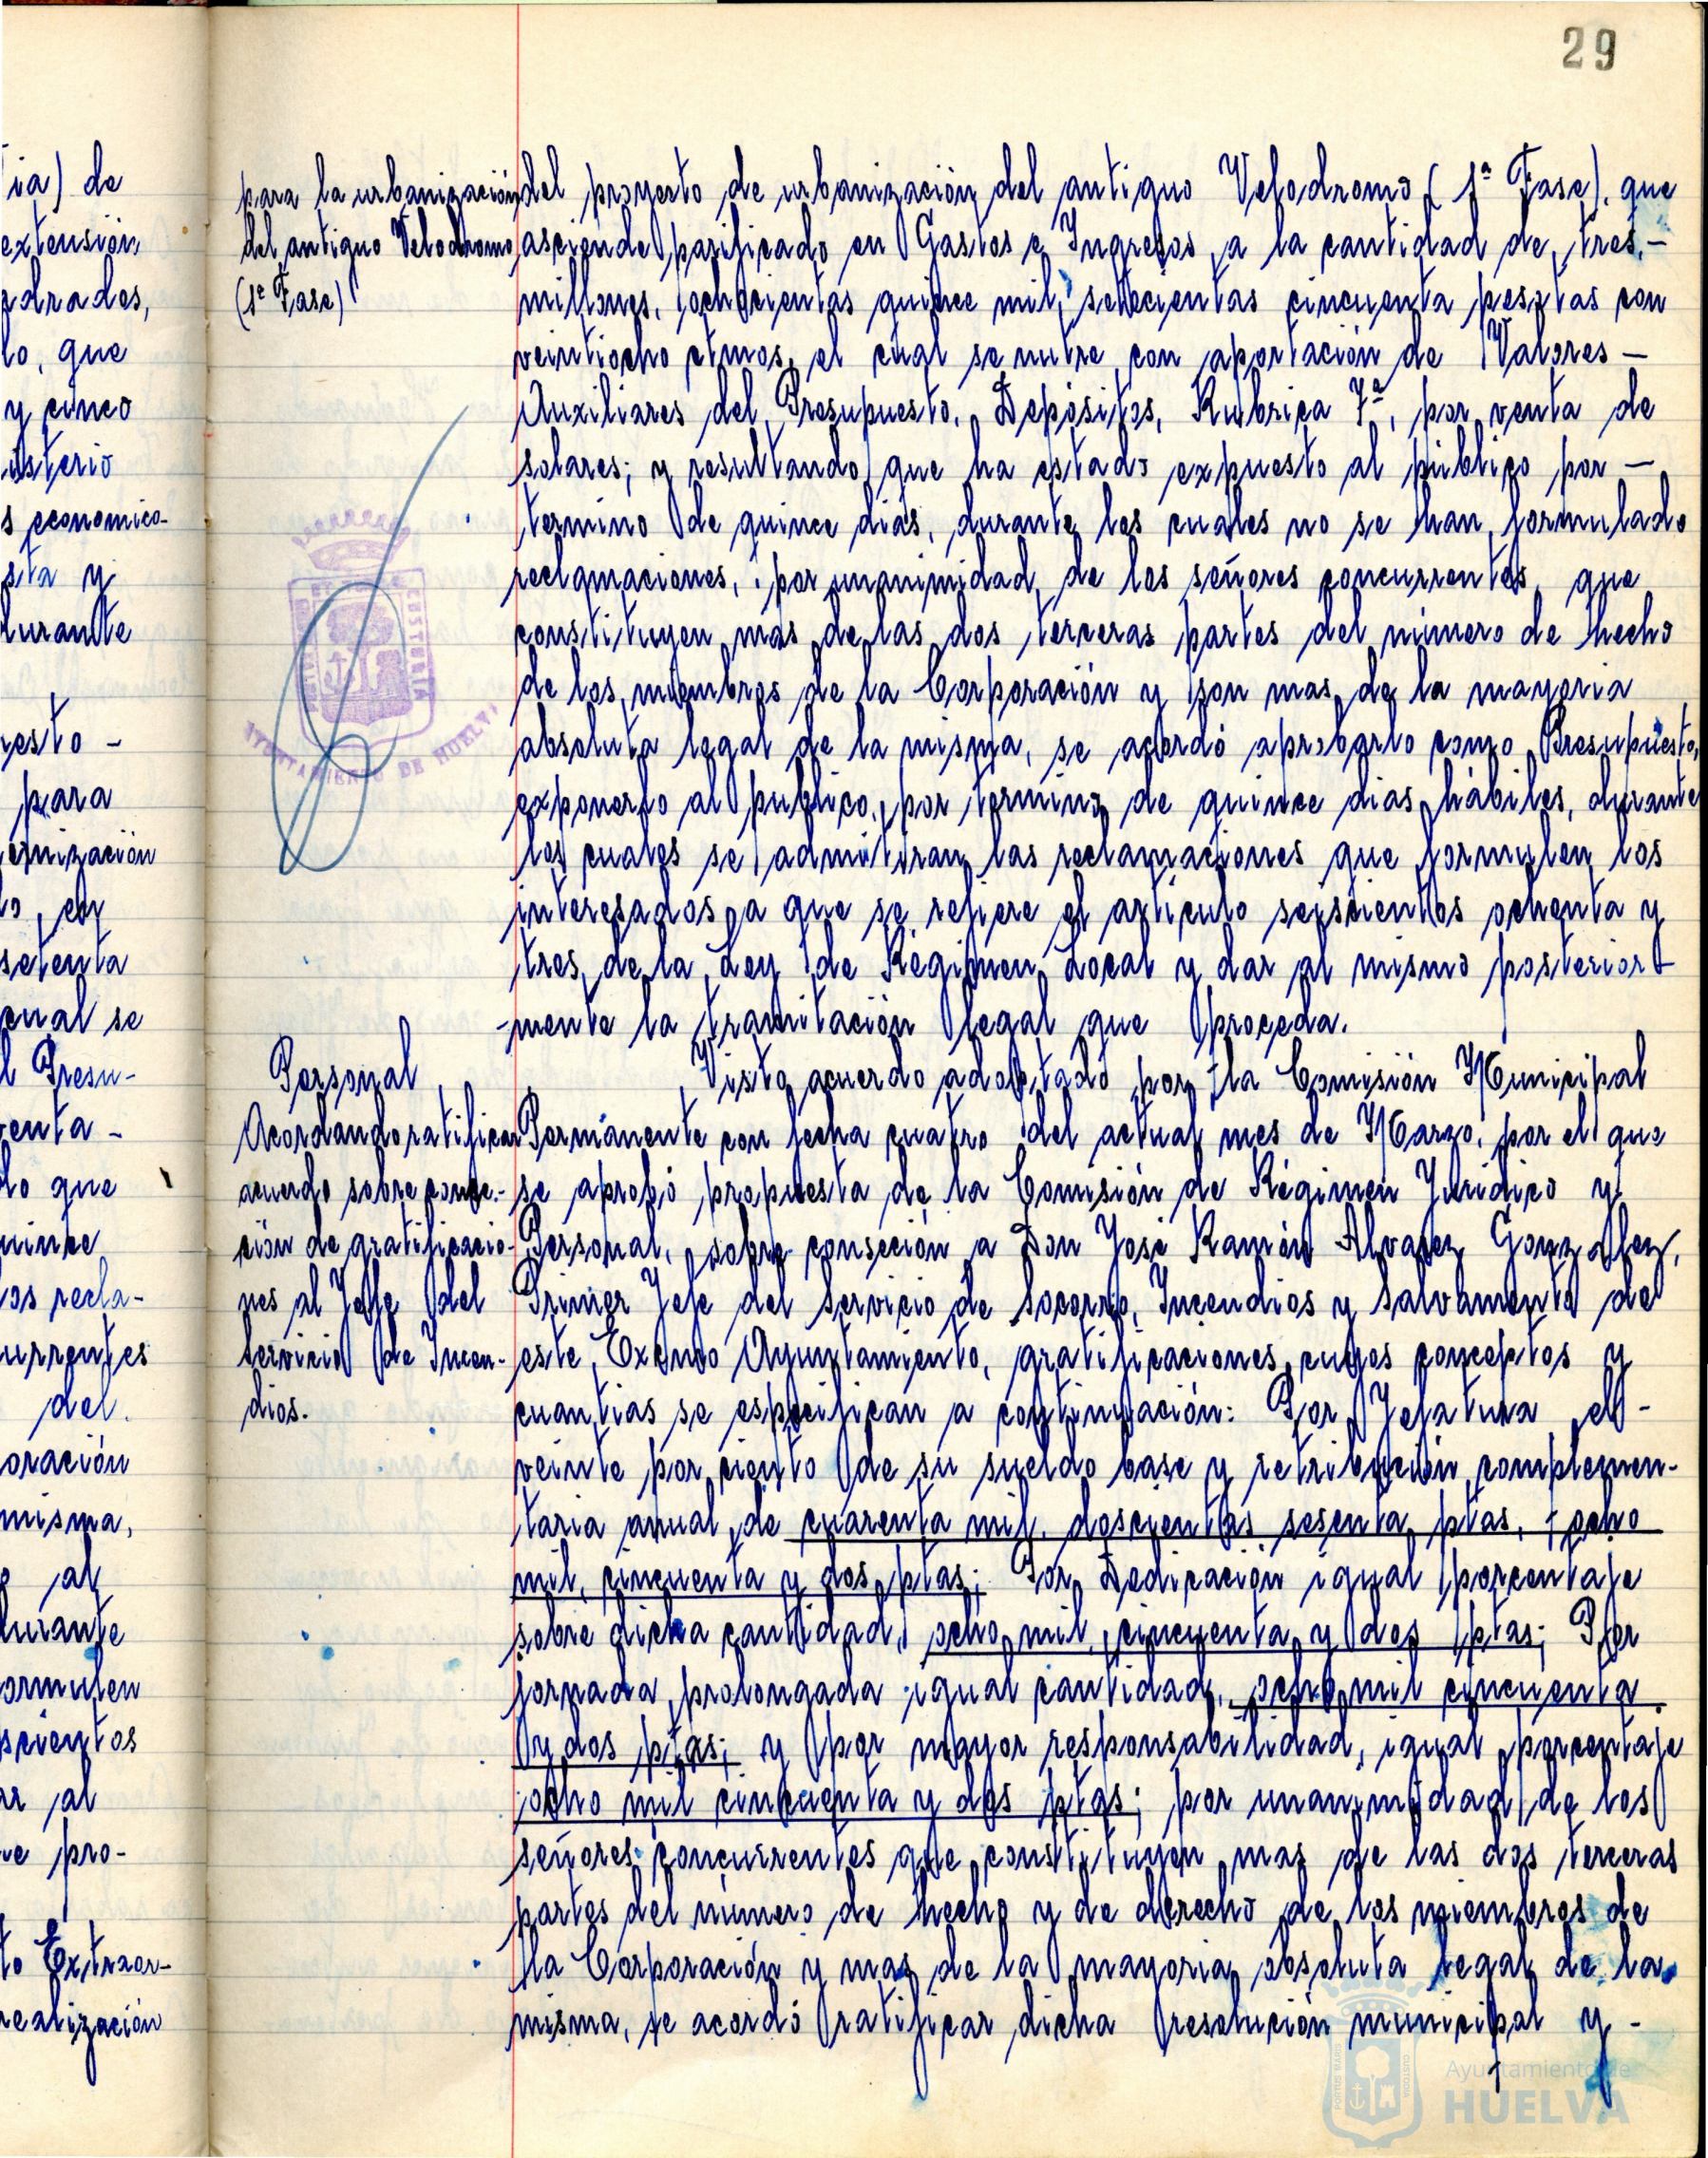 29
ia) de
extensión
adrados,
lo, que
y cinco
isterio
s economico-
sta y
durante
uesto -
para
ernización
lo, en
setenta
cual se
l Presu-
venta -
do que
uince
las recla-
currentes
del
oración
misma,
al
durante
formulen
scientos
ar al
ue pro-
to Extraor-
realización
para la urbanización
del antiguo Velodromo
(1ª Fase)
del proyecto de urbanización del antiguo Velodromo (1ª Fase), que
asciende parificado en Gastos e Ingresos, a la cantidad de, tres,-
millones, ochocientas quince mil, setecientas cincuenta pesetas con
veintiocho ctmos, el cual se nutre con aportación de Valores -
Auxiliares del Presupuesto, Depósitos, Rubrica 7ª, por venta de
solares; y resultando que ha estado expuesto al público por -
termino de quince dias, durante los cuales no se han formulado
reclamaciones, por unanimidad de los señores concurrentes, que
constituyen mas de las dos terceras partes del número de hecho
de los miembros de la Corporación y son mas de la mayoria
absoluta legal de la misma, se acordó aprobarlo como Presupuesto,
exponerlo al público, por termino de quince dias hábiles, durante
los cuales se admitiran las reclamaciones que formulen los
interesados a que se refiere el articulo seiscientos ochenta y
tres de la Ley de Régimen Local y dar al mismo posterior-
-mente la tramitación legal que proceda.
AYUNTAMIENTO DE HUELVA
Personal
Acordando ratificar
acuerdo sobre conce-
ción de gratificacio-
nes al Jefe del
Servicio de Incen-
dios.
Visto acuerdo adoptado por la Comisión Municipal
Permanente con fecha cuatro del actual mes de Marzo, por el que
se aprobó propuesta de la Comisión de Régimen Juridico y
Personal, sobre conseción a Don José Ramón Alvarez Gonzalez,
Primer Jefe del Servicio de Socorro, Incendios y Salvamento de
este Excmo Ayuntamiento, gratificaciones cuyos conceptos y
cuantias se especifican a continuación: Por Jefatura el -
veinte por ciento de su sueldo base y retribución complemen-
taria anual de cuarenta mil, doscientas sesenta ptas, ocho
mil, cincuenta y dos ptas; Por Dedicación igual porcentaje
sobre dicha cantidad, ocho mil, cincuenta y dos ptas; Por
jornada prolongada igual cantidad, ocho mil cincuenta
y dos ptas; y por mayor responsabilidad, igual porcentaje
ocho mil cincuenta y dos ptas; por unanimidad de los
señores concurrentes que constituyen mas de las dos terceras
partes del número de hecho y de derecho de los miembros de
la Corporación y mas de la mayoria absoluta legal de la
misma, se acordó ratificar dicha resolución municipal y -
Ayuntamiento de
HUELVA